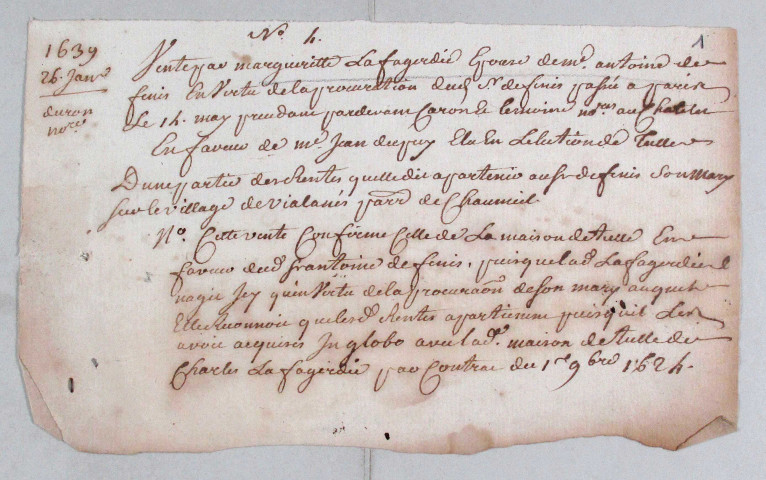 N.o 4.
1
1639
26. Janr
duron
nore
Vente par marguritte Lafagerdie Epouse de mr. antoine de
finis En Vertu de la procuration dud. Sr. de finis passée a paris
Le 14. may precedant pardevant Caron & Lemoine nores. au Chatelet
En faveur de mr. Jean dupuy Elu En Lelection de Tulle
Dune partie des Rentes quelle dit apartenir au Sr. de finis Son mary
Sur le village de vialanés parr. de Chaumeil.
No. Cette vente Confirme Celle de La maison de tulle En
faveur dud. Sr antoine de finis, puisque lad. Lafagerdie
nagit Icy quen Vertu de la procuraon. de Son mary auquel
Elle Reconnoit que lesd. Rentes apartienne puisquil Les
avoit acquises In globo avec lad. maison de tulle de
Charles Lafagerdie par Contrat du 1er 9bre 1624.